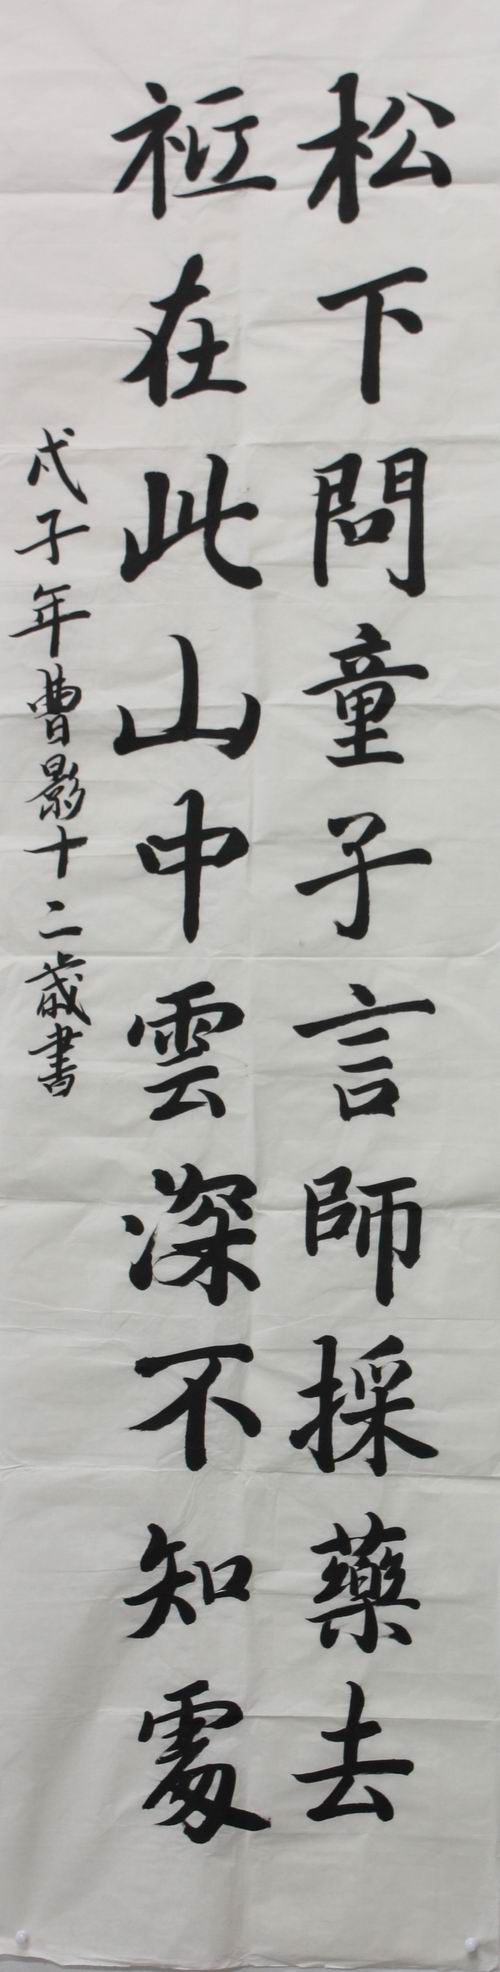 松下問童子言師採藥去
祇在此山中雲深不知處
戊子年曹影十二歲書